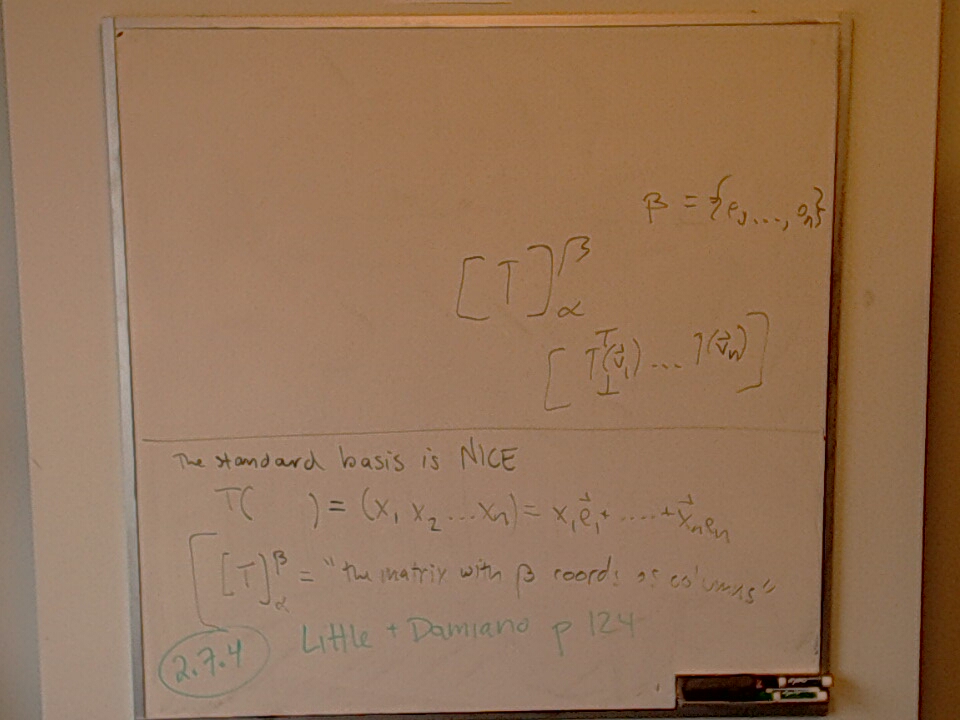 β = {e,...,en}
[T]βα
[T(v⃗1) ... T(v⃗n)]
The standard basis is NICE
T( ) = (x1 x2 ... xn) = x1e⃗1+ ..... +x⃗nen
[T]βα = "the matrix with β coords as columns"
2.7.4 Little + Damiano p 124